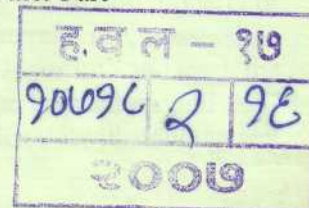 ह.व ल - १७
१०७१८ २ १६
२००७